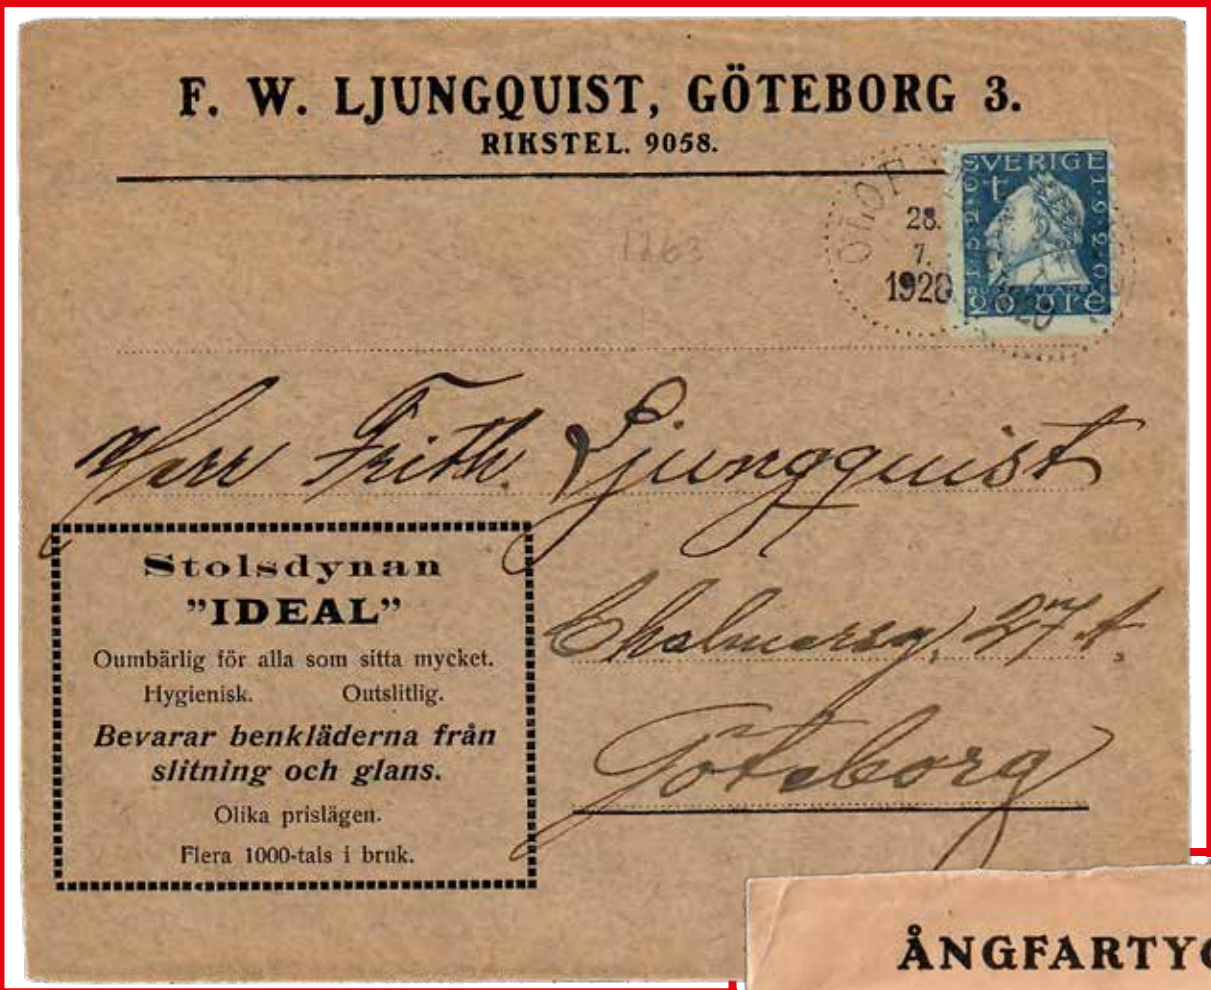 F. W. LJUNGQUIST, GÖTEBORG 3.
RIKSTEL. 9058.
OLOF
28.
7.
1920
SVERIGE
1620
1920
20 öre
1263
Herr Frith. Ljungquist
Chalmersg. 27 A.
Göteborg
Stolsdynan
"IDEAL"
Oumbärlig för alla som sitta mycket.
Hygienisk. Outslitlig.
Bevarar benkläderna från
slitning och glans.
Olika prislägen.
Flera 1000-tals i bruk.
ÅNGFARTYG